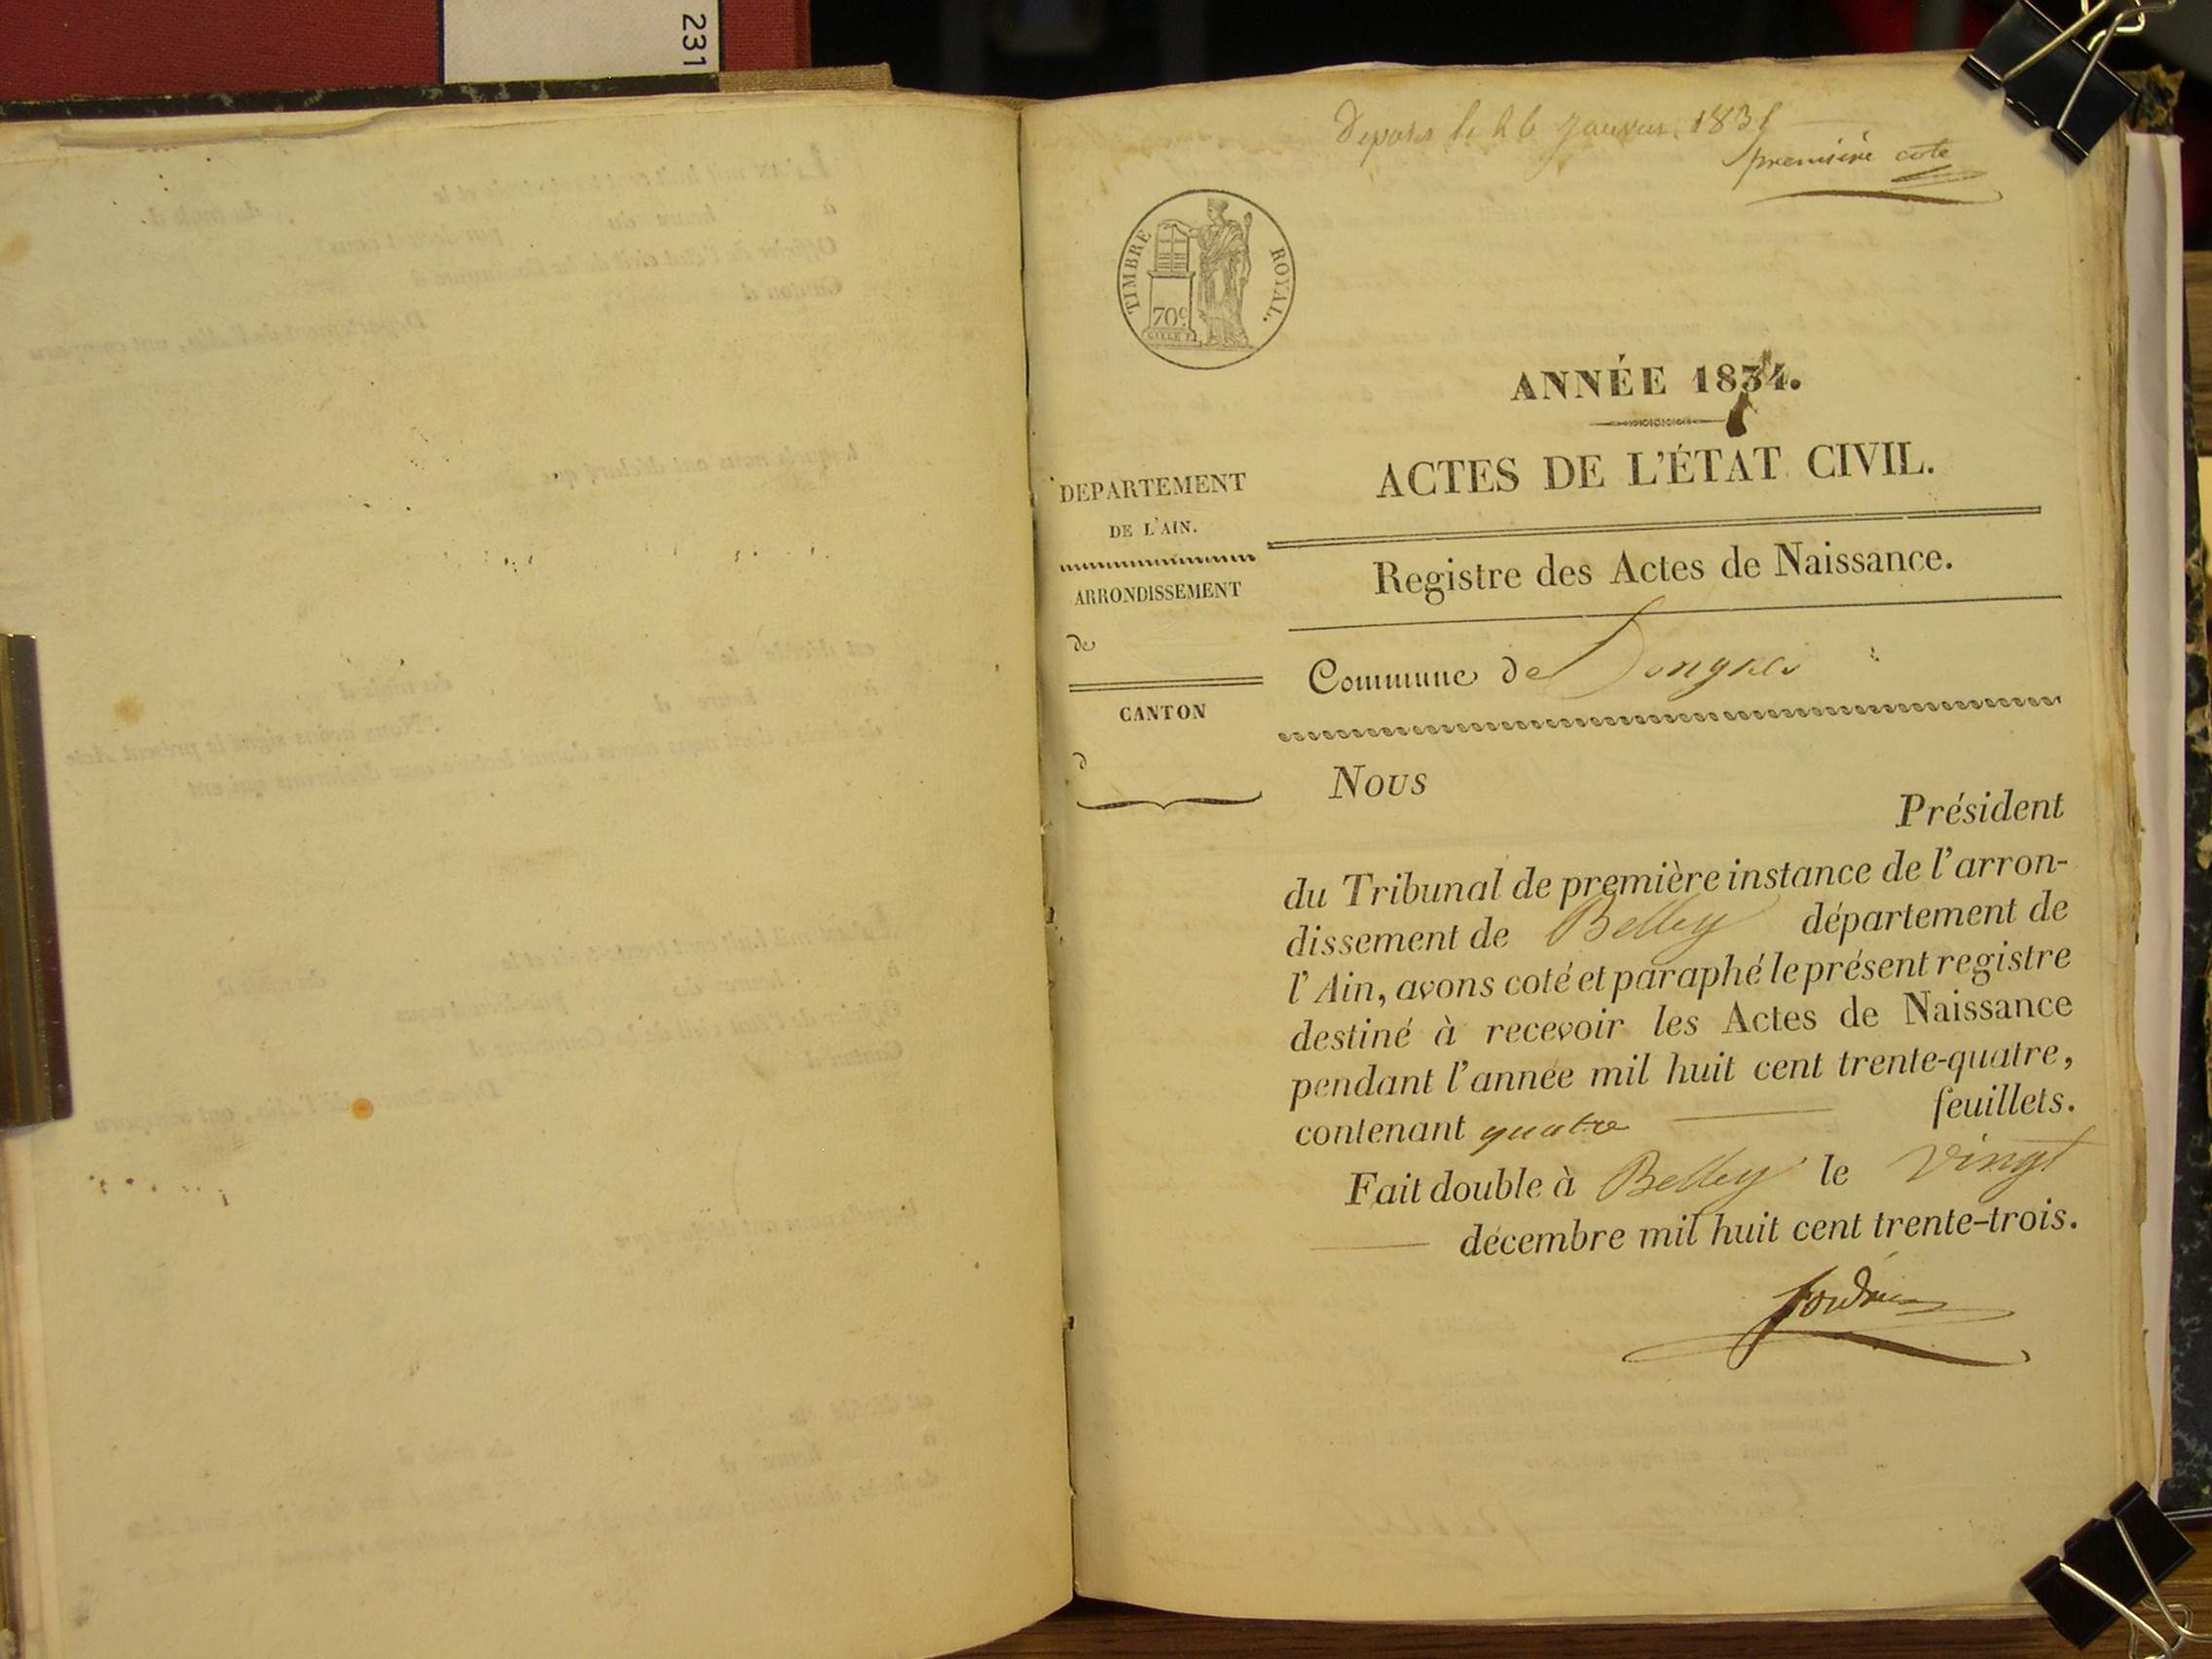 231
Deposé le 26 Janvier 1835
première cote
TIMBRE ROYAL.
70c
ANNÉE 1834.
ACTES DE L'ÉTAT CIVIL.
DEPARTEMENT
DE L'AIN.
ARRONDISSEMENT
de
CANTON
d
Registre des Actes de Naissance.
Commune de Songieu
Nous
Président
du Tribunal de première instance de l'arron-
dissement de Belley département de
l'Ain, avons coté et paraphé le présent registre
destiné à recevoir les Actes de Naissance
pendant l'année mil huit cent trente-quatre,
contenant quatre feuillets.
Fait double à Belley le vingt
décembre mil huit cent trente-trois.